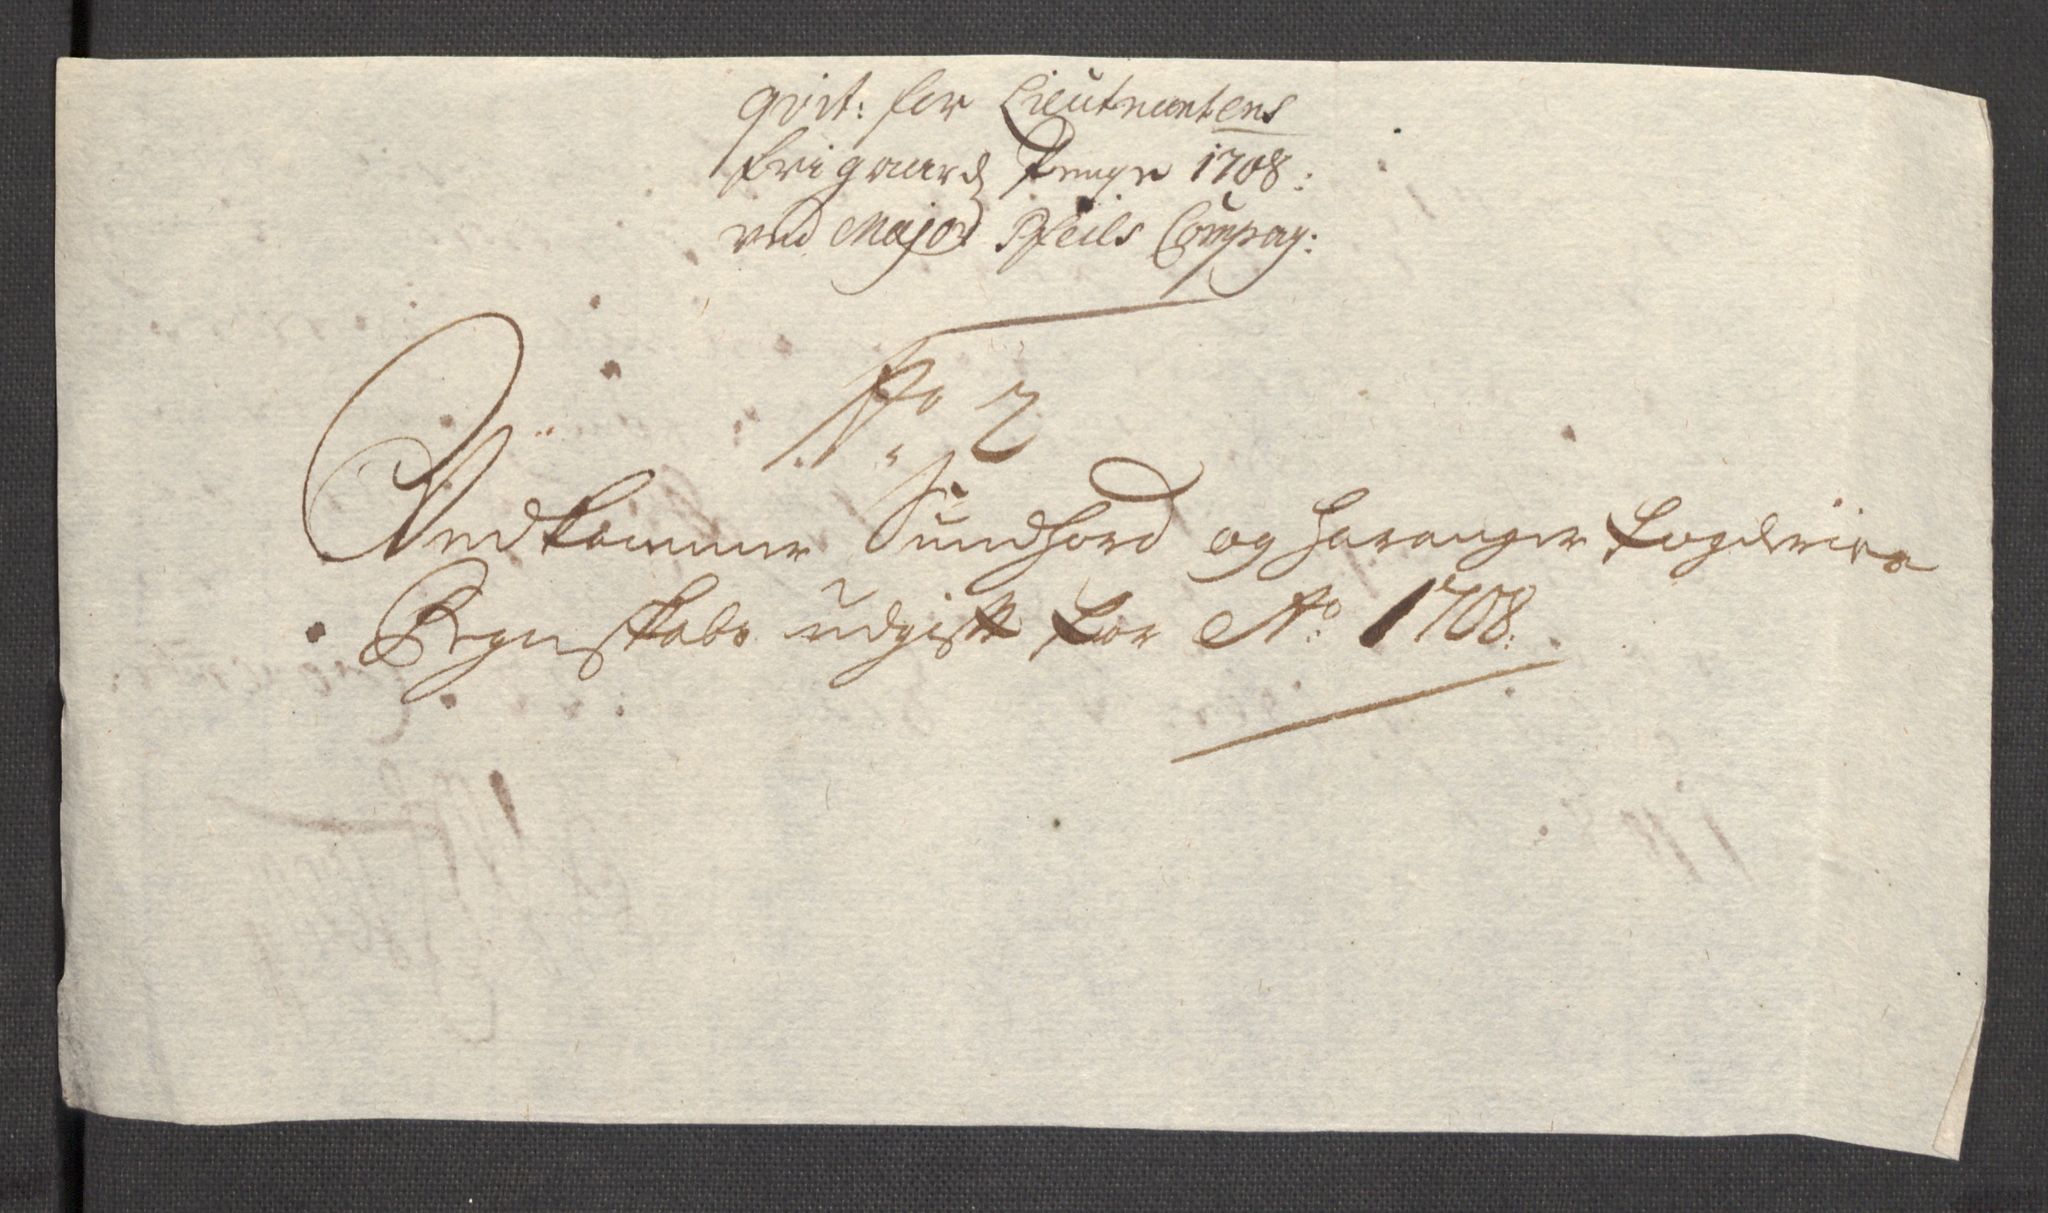 Qvit: for Lieutnantens
frigaards Penge 1708:
ved Major Pfeils Compag:
No 2
Vedkommer Sundhord og Haranger fogderies
Regnskabs udgift for Ao 1708: